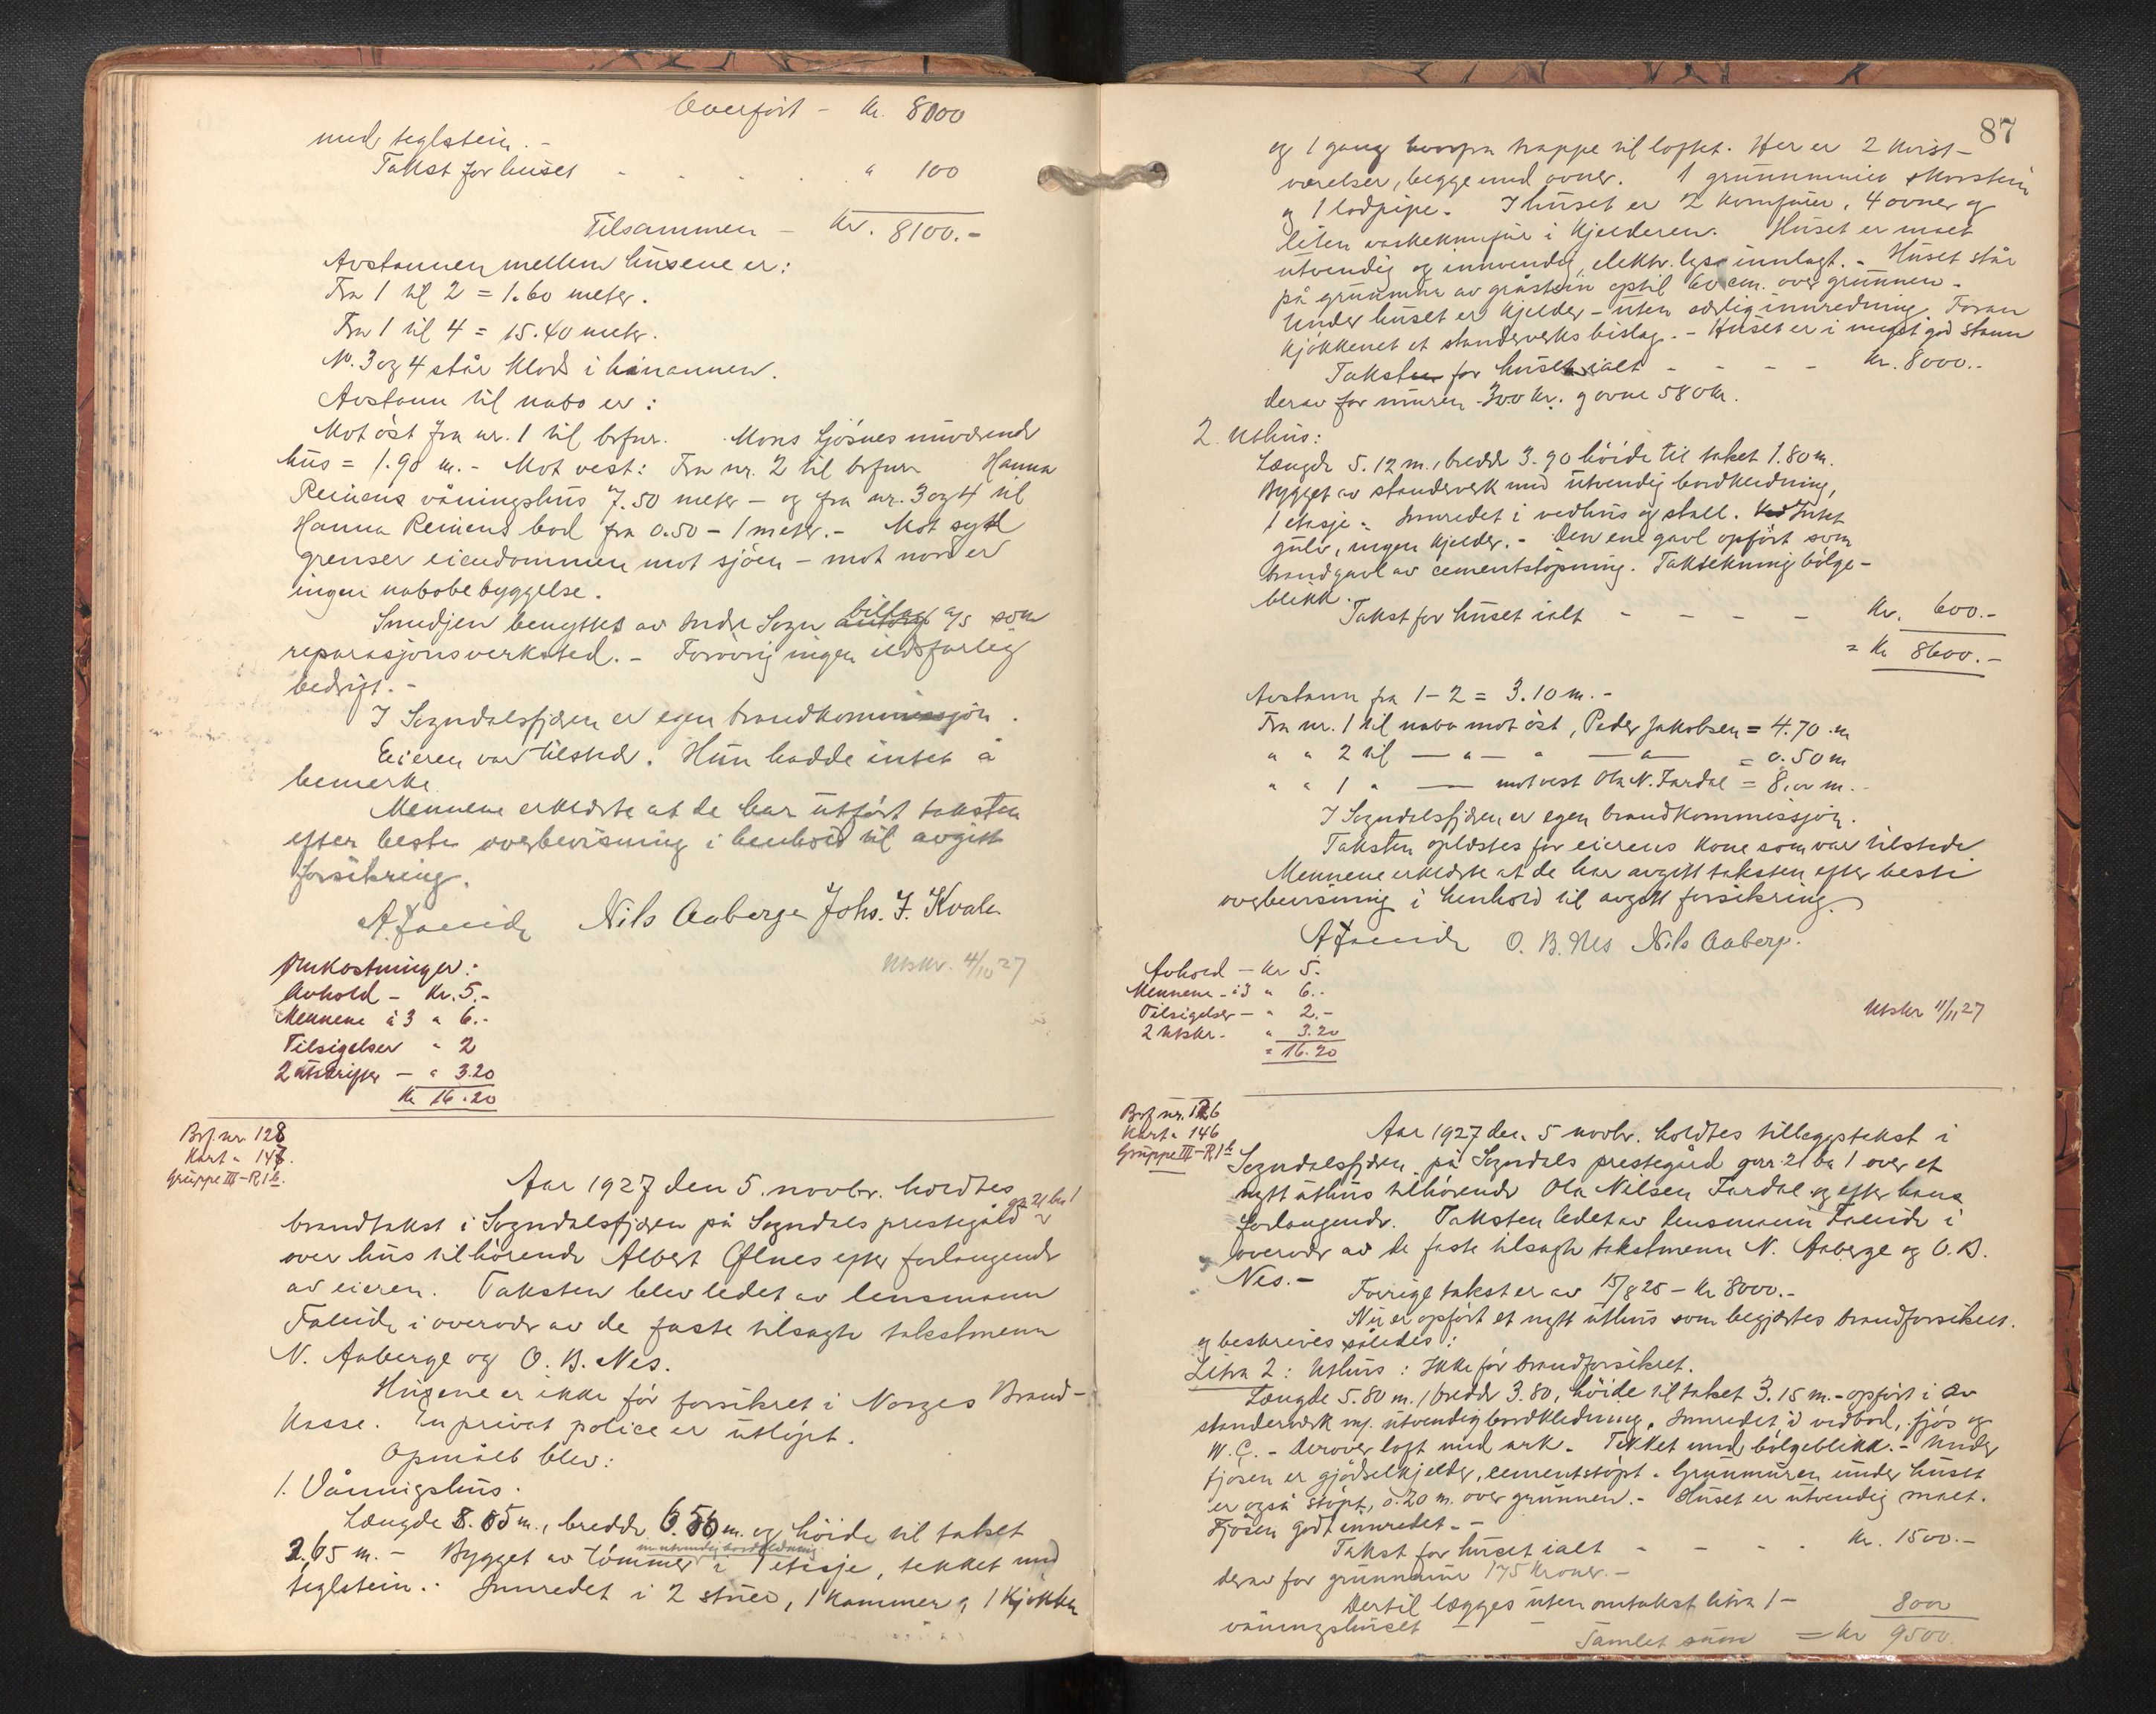 Overført - Kr. 8000
med teglstein. -
Takst for huset - - - . " 100
Tilsammen - Kr. 8100.-
Avstannen mellem husene er:
Fra 1 til 2 = 1.60 meter.
Fra 1 til 4 = 15.40 meter.
No. 3 og 4 står klods i hinannen.
Avstann til nabo er:
Mot øst fra nr. 1 til brfnr. Mons Gjøsnes nuværende
hus = 1.90 m. - Mot vest: Fra nr. 2 til brfnr Hanna
Reinens våningshus 7.50 meter - og fra nr. 3 og 4 til
Hanna Reinens bod fra 0.50 - 1 meter. - Mot syd
grenser eiendommen mot sjøen - mot nord er
ingen nabobebyggelse.
Smedjen benyttes av Indre Sogn billag a/s som
reparasjonsverksted. - Forøvrig ingen ildsfarlig
bedrift. -
I Sogndalsfjøren er egen brandkommissjon.
Eieren var tilstede. Hun hadde intet å
bemerke.
Mennene erklærte at de har utført taksten
efter beste overbevisning i henhold til avgitt
forsikring.
A. Faleide Nils Aaberge Johs. J. Kvale
Utskr. 4/10 27
Omkostninger:
Avhold - Kr. 5.-
Mennene à 3 " 6.-
Tilsigelser " 2
2 utskrifter - " 3.20
Kr 16.20
Brf. nr 128
Kart " 147.
Gruppe III-R1b.
Aar 1927 den 5. novbr. holdtes
brandtakst i Sogndalsfjøren på Sogndals prestegård gr 21 bn 1
over hus tilhørende Albert Ølnes efter forlangende
av eieren. Taksten blev ledet av lensmann
Faleide i overvær av de faste tilsagte takstmenn
N. Aaberge og O. B. Nes.
Husene er ikke før forsikret i Norges Brand-
kasse. En privat police er utløpt.
Opmålt blev:
1. Våningshus.
Længde 8.65 m., bredde 6.56 m. og høide til taket
2.65 m. - Bygget av tømmer m utvendig bordkledning i 1 etasje, tekket med
teglstein. - Innredet i 2 stuer, 1 kammer, 1 kjøkken
87
og 1 gang hvorfra trappe til loftet. Her er 2 kvist-
værelser, begge med ovner. 1 grunnmuret skorstein
og 1 lodpipe. I huset er 2 komfurer, 4 ovner og
liten vaskekomfur i kjelderen. Huset er malt
utvendig og innvendig, elektr. lys innlagt. - Huset står
på grunnmur av gråstein optil 60 cm. over grunnen -
Under huset er kjelder - uten særlig innredning. Foran
kjøkkenet et standerverks bislag. - Huset er i meget god stann
Taksten for huset ialt - - - - Kr. 8000.-
Derav for muren 300 kr. og ovne 580 kr.
2. Uthus:
Længde 5.12 m., bredde 3.90 høide til taket 1.80 m.
Bygget av standerverk med utvendig bordkledning,
1 etasje. Innredet i vedhus og stall. Intet
gulv, ingen kjelder. - Den ene gavl opført som
brandgavl av cementstøpning. Taktekning bølge-
blikk.
Takst for huset ialt - - - - Kr. 600.-
= Kr 8600.-
Avstann fra 1 - 2 = 3.10 m. -
Fra nr. 1 til nabo mot øst, Peder Jakobsen = 4.70 m
" " 2 til — " — " — " — = 0.50 m
" " 1 " — mot vest Ola N. Fardal = 8,00 m. -
I Sogndalsfjøren er egen brandkommissjon.
Taksten oplæstes for eierens kone som var tilstede
Mennene erklærte at de har avgitt taksten efter beste
overbevisning i henhold til avgitt forsikring.
A Faleide O. B. Nes Nils Aaberge.
Avhold - kr 5.-
Mennene - à 3 " 6.-
Tilsigelser - " 2.-
2 Utskr. " 3.20
" 16.20
Utskr 11/11 27
Brf. nr. 126
Kart " 146
Gruppe III-R1b
Aar 1927 den 5 novbr. holdtes tilleggstakst i
Sogndalsfjøren på Sogndals prestegård gnr. 21 bn 1 over et
nytt uthus tilhørende Ola Nilsen Fardal og efter hans
forlangende. Taksten ledet av lensmann Faleide i
overvær av de faste tilsagte takstmenn N. Aaberge og O. B.
Nes. -
Forrige takst er av 15/8 25 - Kr 8000.-
Nu er opført et nytt uthus som begjærtes brandforsikret.
og beskrives således:
Litra 2: Uthus: Ikke før brandforsikret.
Længde 5.80 m., bredde 3.80, høide til taket 3.15 m. - opført i av
standerverk m/. utvendig bordkledning. Innredet i vedbod, fjøs og
W.C. - Derover loft med ark. - Tekket med bølgeblikk. - Under
fjøsen er gjødselkjelder, cementstøpt. Grunnmuren under huset
er også støpt, 0.20 m. over grunnen. - Huset er utvendig malt.
Fjøsen godt innredet. -
Takst for huset ialt - - - . Kr. 1500.-
derav for grunnmur 175 kroner. -
Dertil lægges uten omtakst litra 1 -
våningshuset 8000
Samlet sum = Kr 9500.